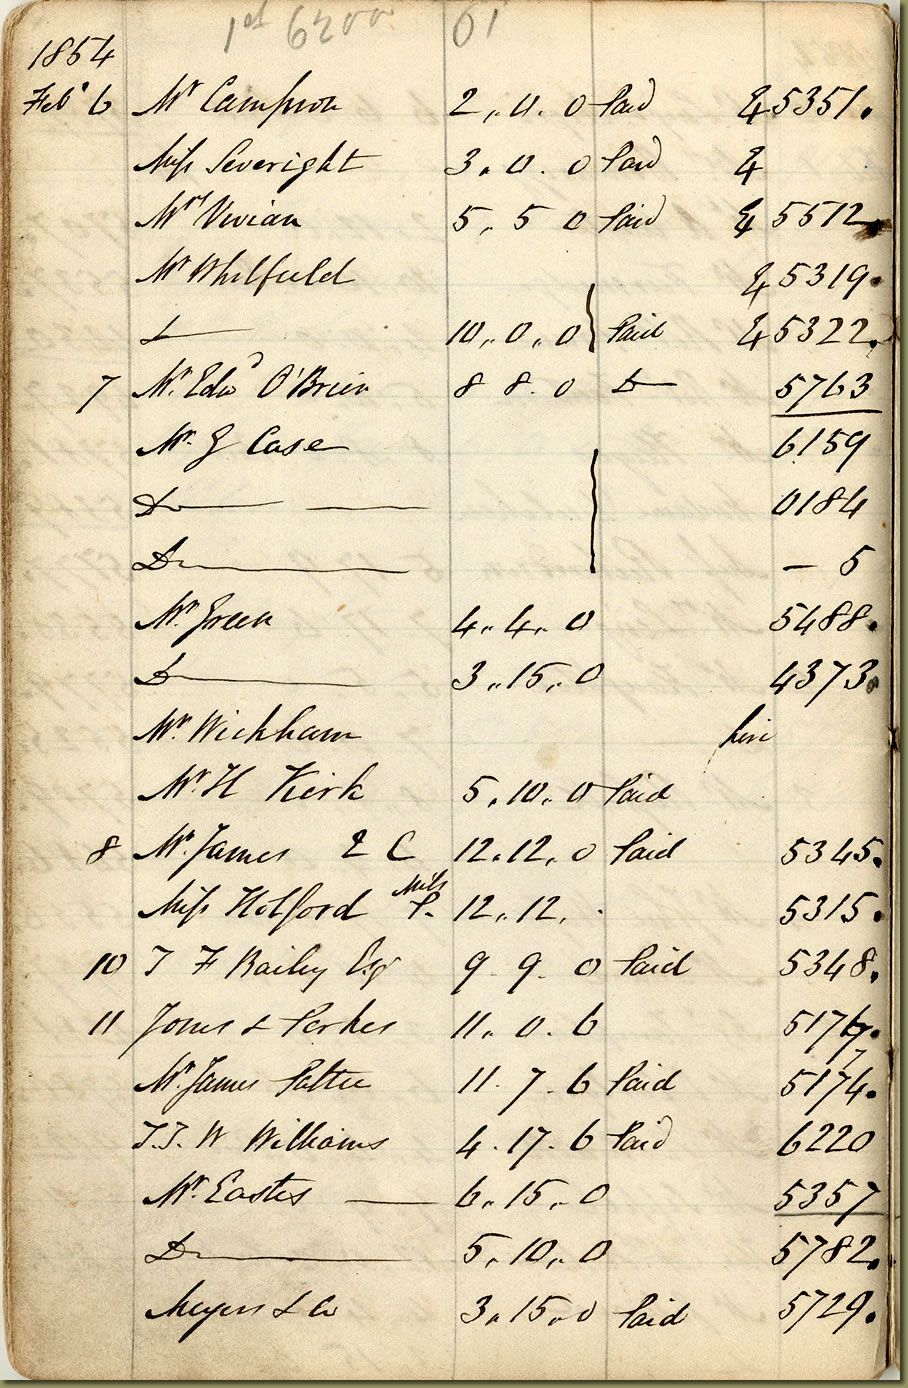 1st 6200 61
1854
Feby 6 Mr Campion 2,, 0. 0 Paid 45351.
Miss Severight 3. 0. 0 Paid 4
Mrs Vivian 5,, 5 0 Paid 45512.
Mr Whilfield 45319.
10,, 0,, 0 Paid 45322.
7 Mr. Edwd O'Brien 8 8. 0 Do 5763
Mr. G Case 6159
Do 0184
Do — 5
Mr. Green 4,, 4,, 0 5488.
Do 3,, 15,, 0 4373.
Mr. Wickham hire
Mr H Kirk 5,, 10,, 0 Paid
8 Mr. James & C 12. 12. 0 Paid 5345.
Miss Holford P. 12,, 12. 5315.
10 T F Bailey Esqr 9 9. 0 Paid 5348.
11 Jones & Perkes 11. 0. 6 5176.
7
Mr. James 11. 7. 6 Paid 5174.
T.T. W Williams 4. 17. 6 Paid 6220
Mr. Eastes — 6. 15. 0 5357
Do 5,, 10,, 0 5782.
Meyers & Co 3. 15,, 0 Paid 5729.